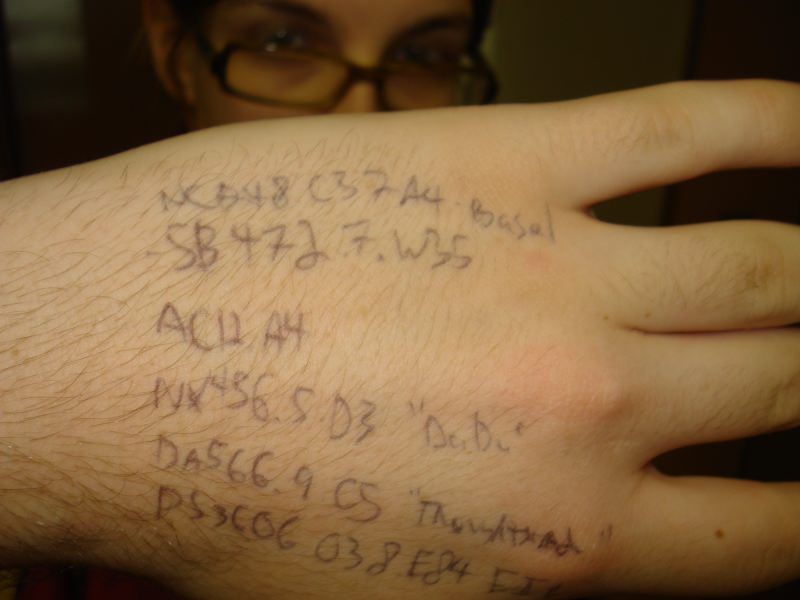 NCB48 C37 A4 Basel
-SB472.7.W35
AC12 A4
NX456.5.D3 "DaDa"
DA566.9 C5
DS3C06 038 E84